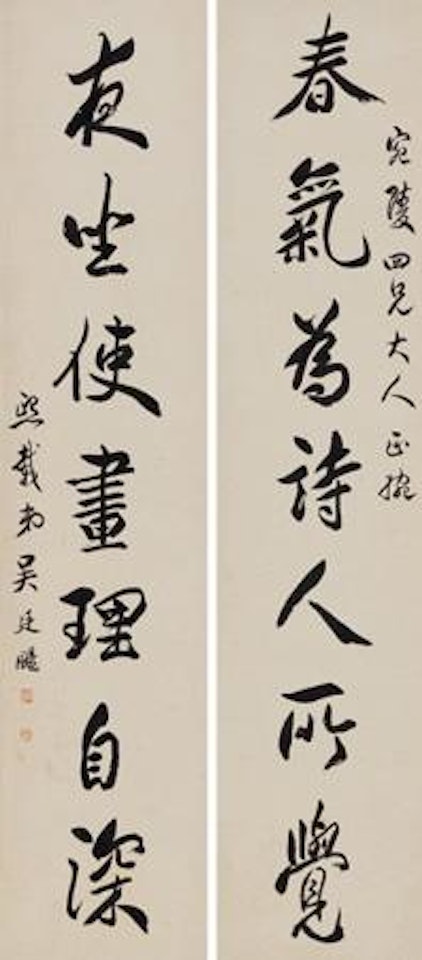 宛陵四兄大人正捥
春氣為詩人所覺
夜坐使畫理自深
熙載弟吳廷颺